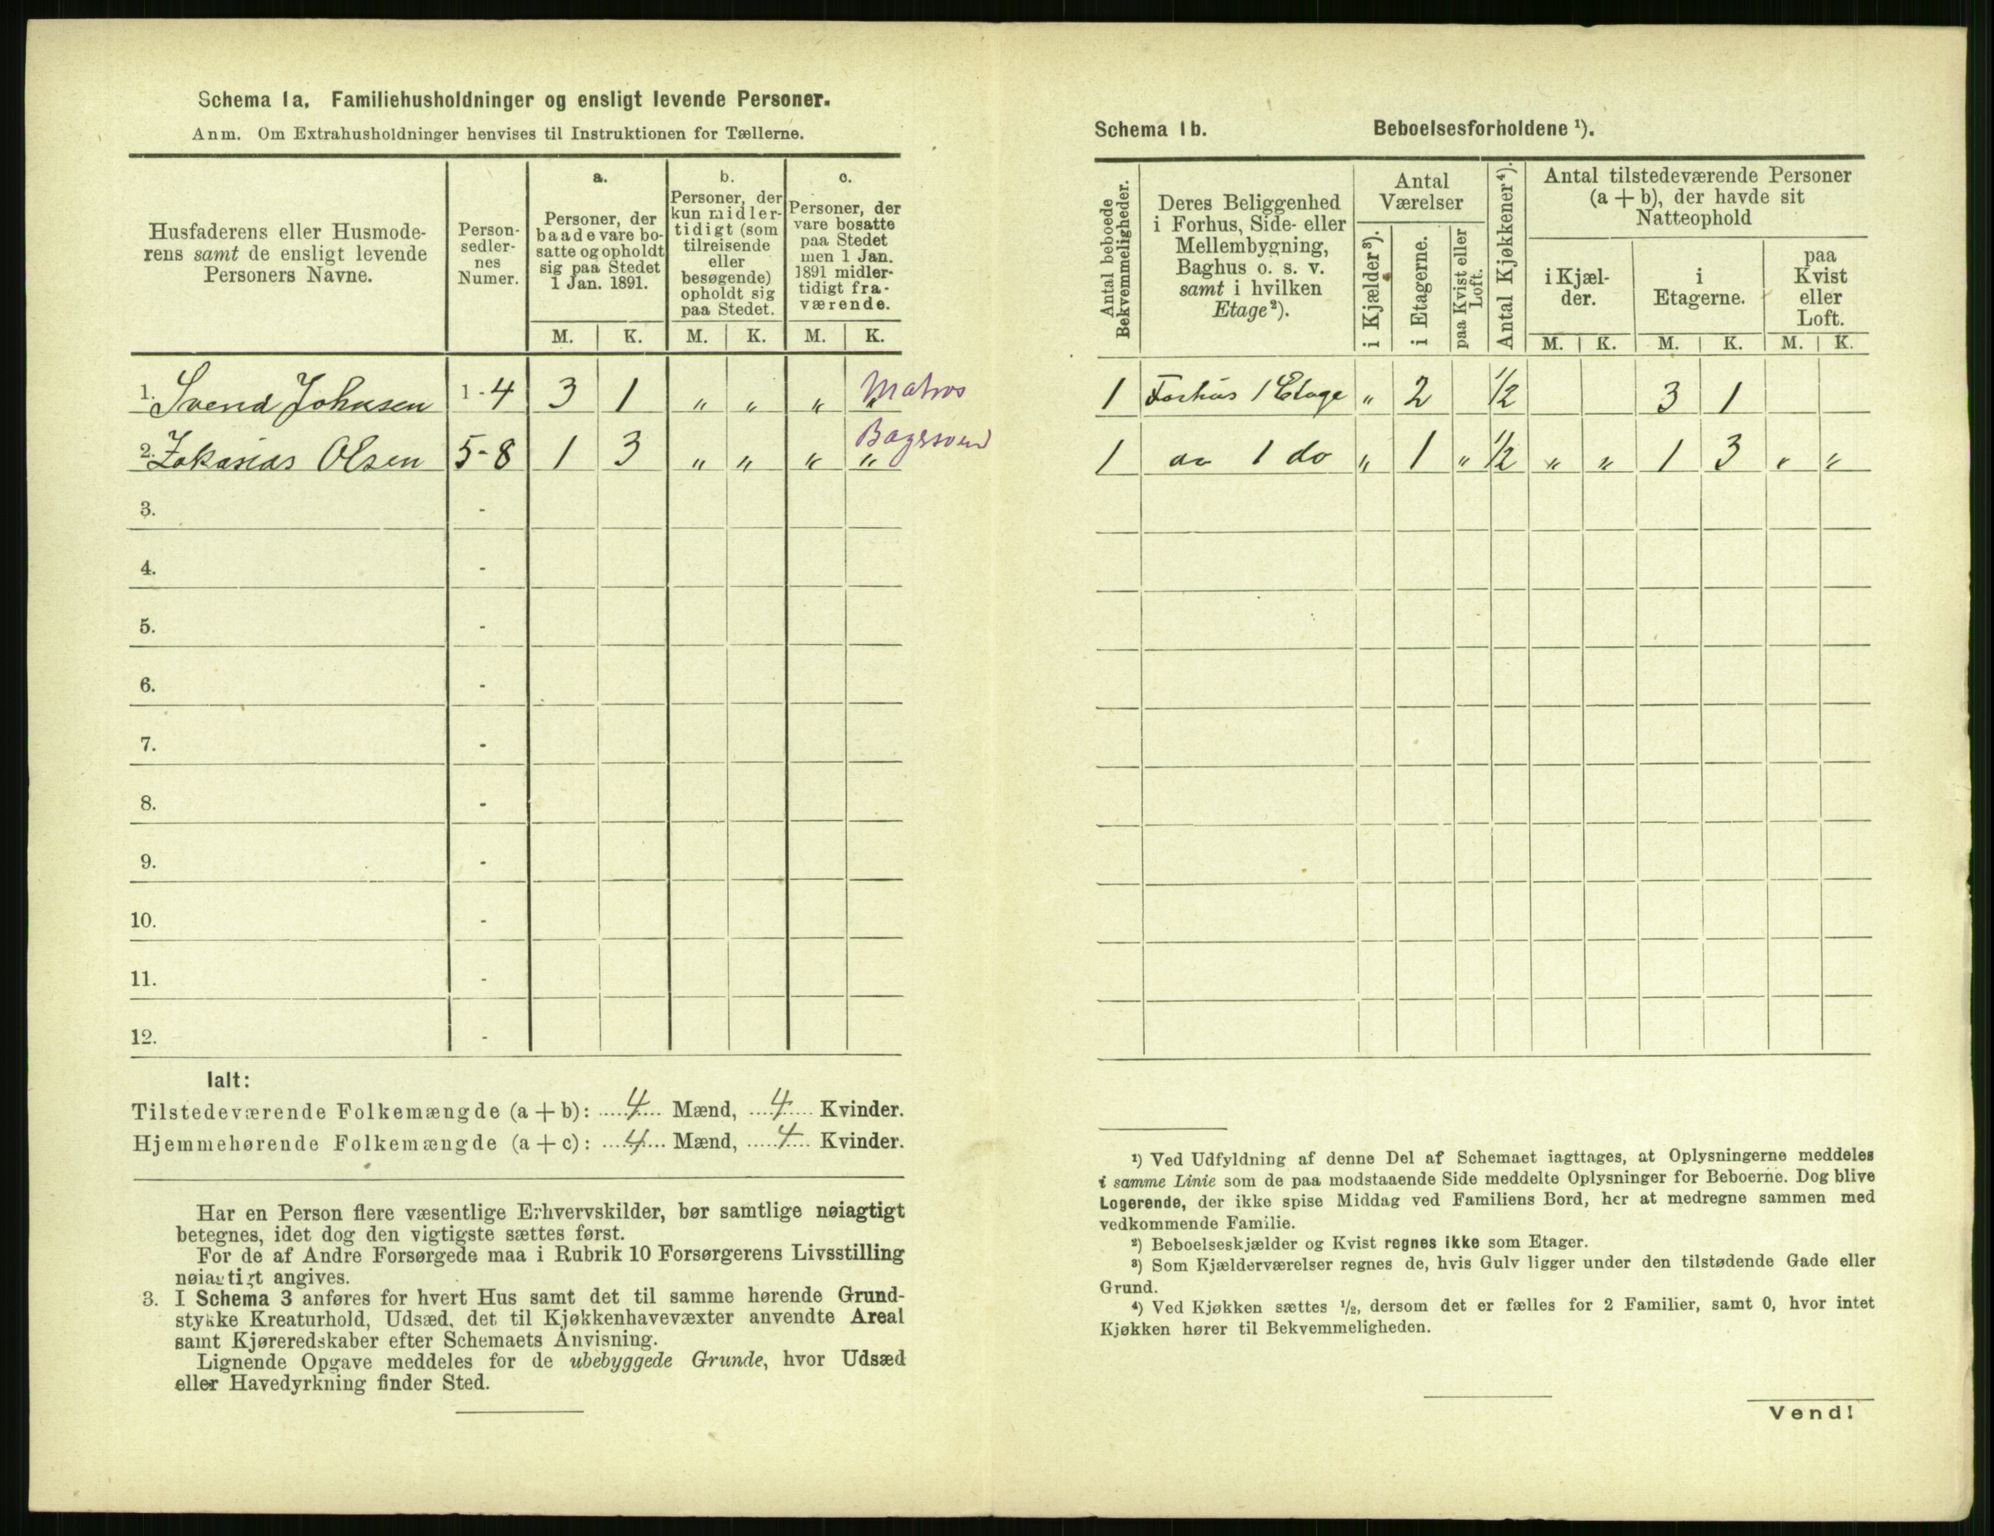 Schema 1a. Familiehusholdninger og ensligt levende Personer.
Anm. Om Extrahusholdninger henvises til Instruktionen for Tællerne.
Husfaderens eller Husmode-
rens samt de ensligt levende
Personers Navne.
Person-
sedler-
nes
Numer.
a.
Personer, der
baade vare bo-
satte og opholdt
sig paa Stedet
1 Jan. 1891.
b.
Personer, der
kun midler-
tidigt (som
tilreisende
eller
besøgende)
opholdt sig
paa Stedet.
c.
Personer, der
vare bosatte
paa Stedet
men 1 Jan.
1891 midler-
tidigt fra-
værende.
M. K. M. K. M. K.
1. Svend Johnsen 1-4 3 1 „ „ „ „ Matros
2. Zakarias Olsen 5-8 1 3 „ „ „ „ Bagersvend
3. -
4. -
5. -
6. -
7. -
8. -
9. -
10. -
11. -
12. -
Ialt:
Tilstedeværende Folkemængde (a + b): 4 Mænd, 4 Kvinder.
Hjemmehørende Folkemængde (a + c): 4 Mænd, 4 Kvinder.
Har en Person flere væsentlige Erhvervskilder, bør samtlige nøiagtigt
betegnes, idet dog den vigtigste sættes først.
For de af Andre Forsørgede maa i Rubrik 10 Forsørgerens Livsstilling
nøiagtigt angives.
3. I Schema 3 anføres for hvert Hus samt det til samme hørende Grund-
stykke Kreaturhold, Udsæd, det til Kjøkkenhavevæxter anvendte Areal
samt Kjøreredskaber efter Schemaets Anvisning.
Lignende Opgave meddeles for de ubebyggede Grunde, hvor Udsæd
eller Havedyrkning finder Sted.
Schema 1b. Beboelsesforholdene ¹).
Antal beboede
Bekvemmeligheder.
Deres Beliggenhed
i Forhus, Side- eller
Mellembygning,
Baghus o. s. v.
samt i hvilken
Etage²).
Antal
Værelser
i Kjælder³).
i Etagerne.
paa Kvist eller
Loft.
Antal Kjøkkener⁴).
Antal tilstedeværende Personer
(a + b), der havde sit
Natteophold
i Kjæl-
der.
i
Etagerne.
paa
Kvist
eller
Loft.
M. K. M. K. M. K.
1 Forhus 1 Etage „ 2 ½ 3 1
1 do 1 do „ 1 „ ½ „ „ 1 3 „ „
¹) Ved Udfyldning af denne Del af Schemaet iagttages, at Oplysningerne meddeles
i samme Linie som de paa modstaaende Side meddelte Oplysninger for Beboerne. Dog blive
Logerende, der ikke spise Middag ved Familiens Bord, her at medregne sammen med
vedkommende Familie.
²) Beboelseskjælder og Kvist regnes ikke som Etager.
³) Som Kjælderværelser regnes de, hvis Gulv ligger under den tilstødende Gade eller
Grund.
⁴) Ved Kjøkken sættes ½, dersom det er fælles for 2 Familier, samt 0, hvor intet
Kjøkken hører til Bekvemmeligheden.
Vend!